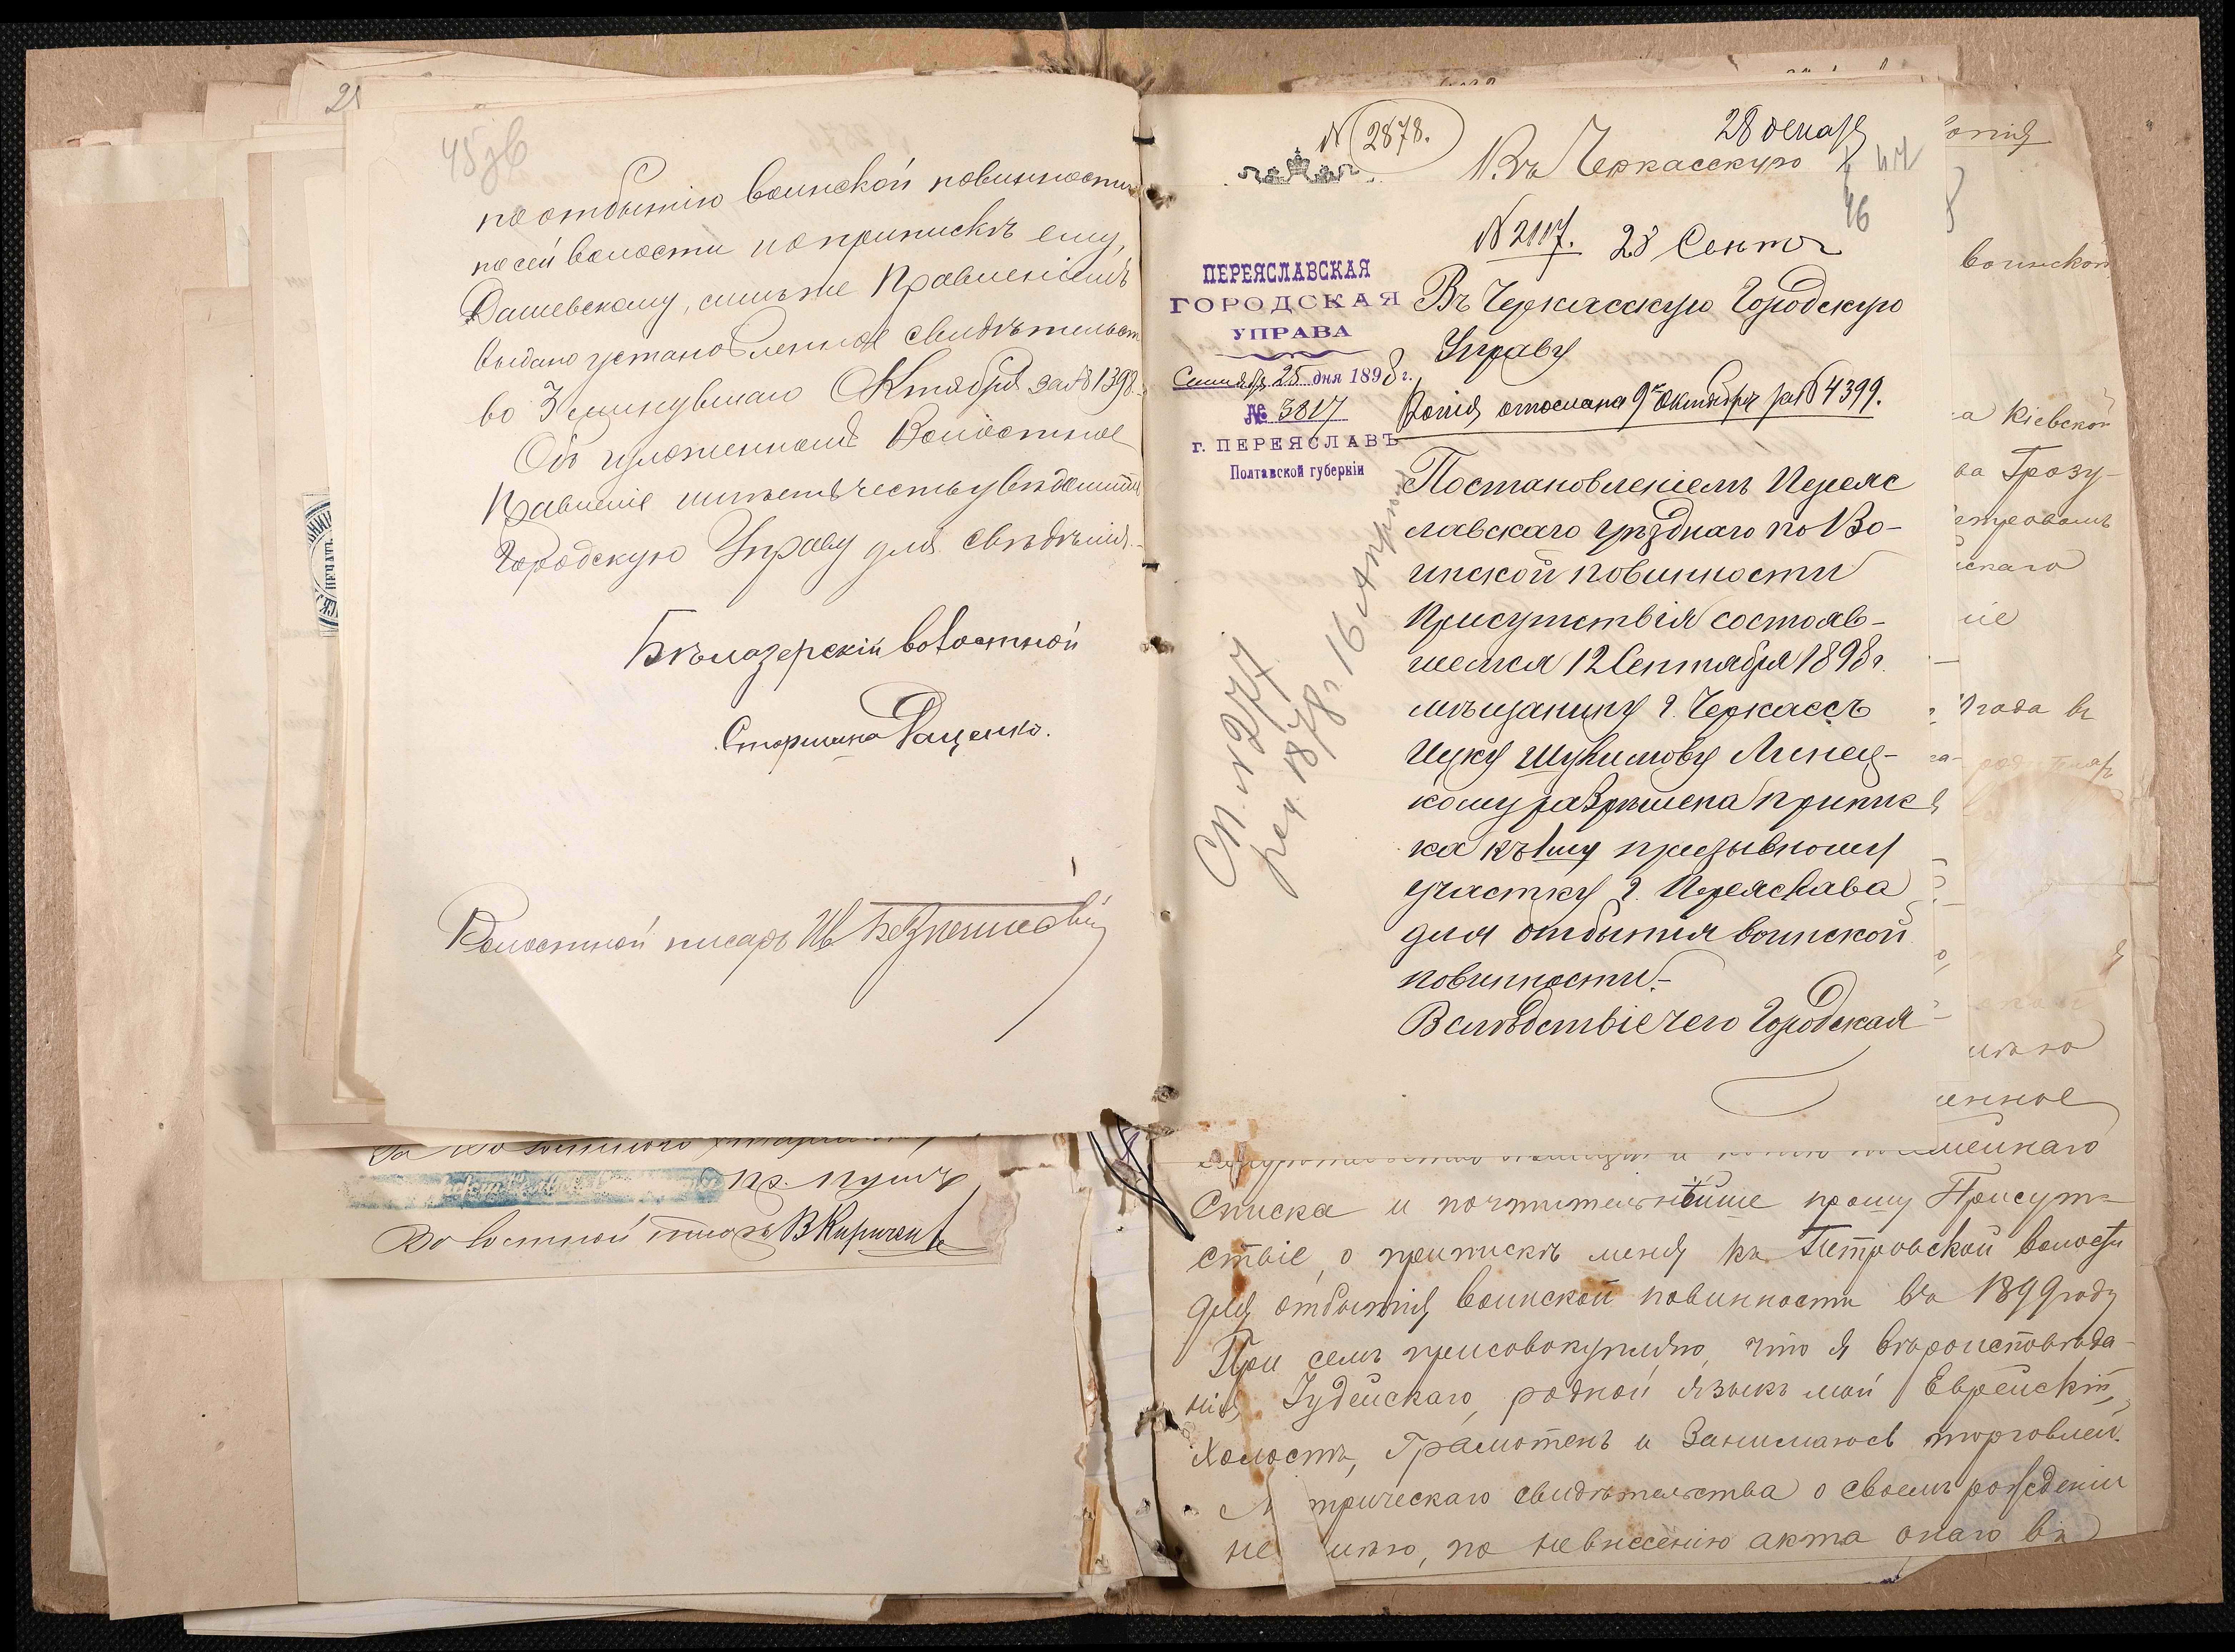 45 зв
по отбытію воинской повинности
по сей волости и о припискѣ ему,
Дашевскому, симъ же Правленіемъ
выдано установленное свидѣтельст
во 3 минувшаго Октября за № 1398.
Объ изложенномъ Волостное
Правленіе имѣетъ честь увѣдомить
Городскую Управу для свѣдѣнія.
Бѣлозерскій волостной
Старшина Даценко.
Волостной писарь Ив
пр. пунк
Волостной писарь В Кириченко
N 2878.
28 декабр
Въ Черкасскую
47
46
№ 2117. 28 Сент
ПЕРЕЯСЛАВСКАЯ
ГОРОДСКАЯ
УПРАВА
Сентября 25 дня 1898 г.
№ 3817
г. ПЕРЕЯСЛАВЪ
Полтавской губерніи
Въ Черкасскую Городскую
Управу
Копія отослана 9го Октября за № 4399.
Постановленіемъ Переяс
лавскаго уѣзднаго по Во-
инской повинности
Присутствія состояв-
шемся 12 Сентября 1898 г.
мѣщанину г. Черкассъ
Ицку Шулимову Линец-
кому разрѣшена припис
ка къ 1му призывному
участку г. Переяслава
для отбытія воинской
повинности.-
Вслѣдствіе чего Городская
Сп. N 277
род. 1878 г. 16 Апрѣля
воинской
а Кіевской
ва Грозу-
скаго
ніе
года въ
енное
мейнаго
Списка и почтительнѣйше прошу Присут-
ствіе, о припискѣ меня къ Петровской волости
для отбытія воинской повинности въ 1899 году
При семъ присовокупляю, что я вѣроисповѣда-
нія Іудейскаго, родной языкъ мой Еврейскій,
Холостъ, Грамотенъ и Занимаюсь торговлей.
М трическаго свидѣтельства о своемъ рожденіи
не имѣю, по невнесенію акта онаго въ